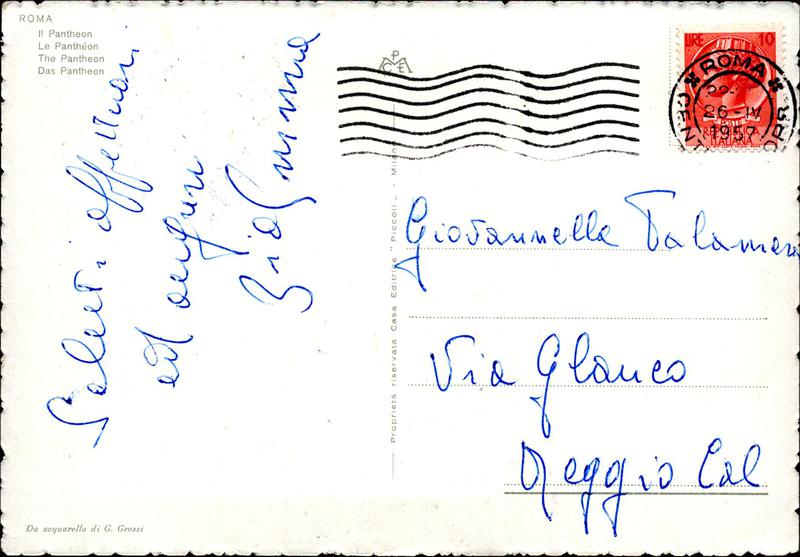 ROMA
Il Pantheon
Le Panthéon
The Pantheon
Das Pantheon
Saluti affettuosi
ed auguri
Zia Gemma
Da acquarello di G. Grossi
Proprietà riservata Casa Editrice "Piccoli" - Milano
LIRE 10
ROMA
26 IV
1957
POSTE
ITALIANA
Giovannella
Via Glauco
Reggio Cal